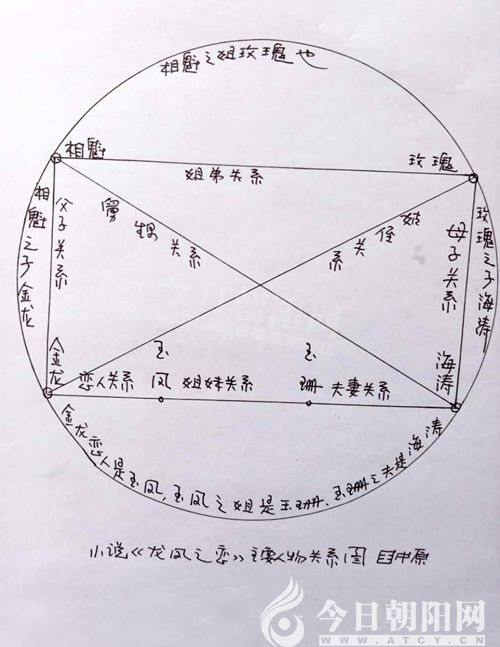 相魁之姐玫瑰也
相魁
玫瑰
姐弟关系
父子关系
舅甥关系
姑侄关系
母子关系
相魁之子金龙
玫瑰之子海涛
金龙
恋人关系
玉凤
姐妹关系
玉珊
夫妻关系
海涛
金龙恋人是玉凤,玉凤之姐是玉珊,玉珊之夫是海涛
小说《龙凤之恋》主要人物关系图 田中原
今日朝阳网
WWW.ATCY.CN